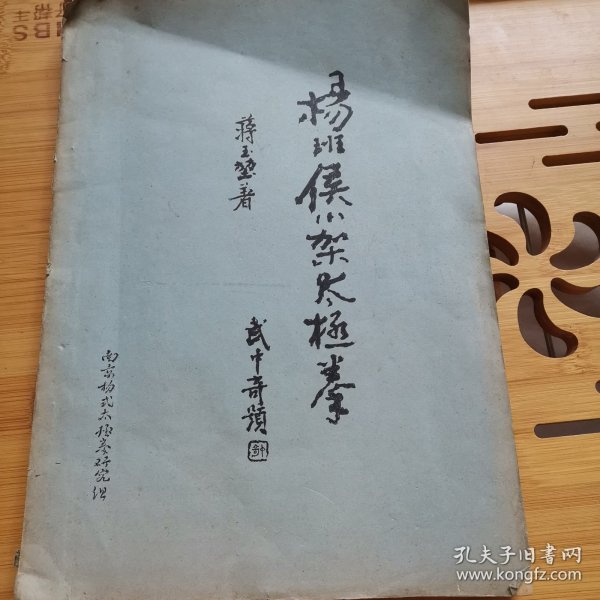 楊班侯小架太極拳
蒋玉堃著
武中奇題
南京杨式太极拳研究组
孔夫子旧书网
www.kongfz.com